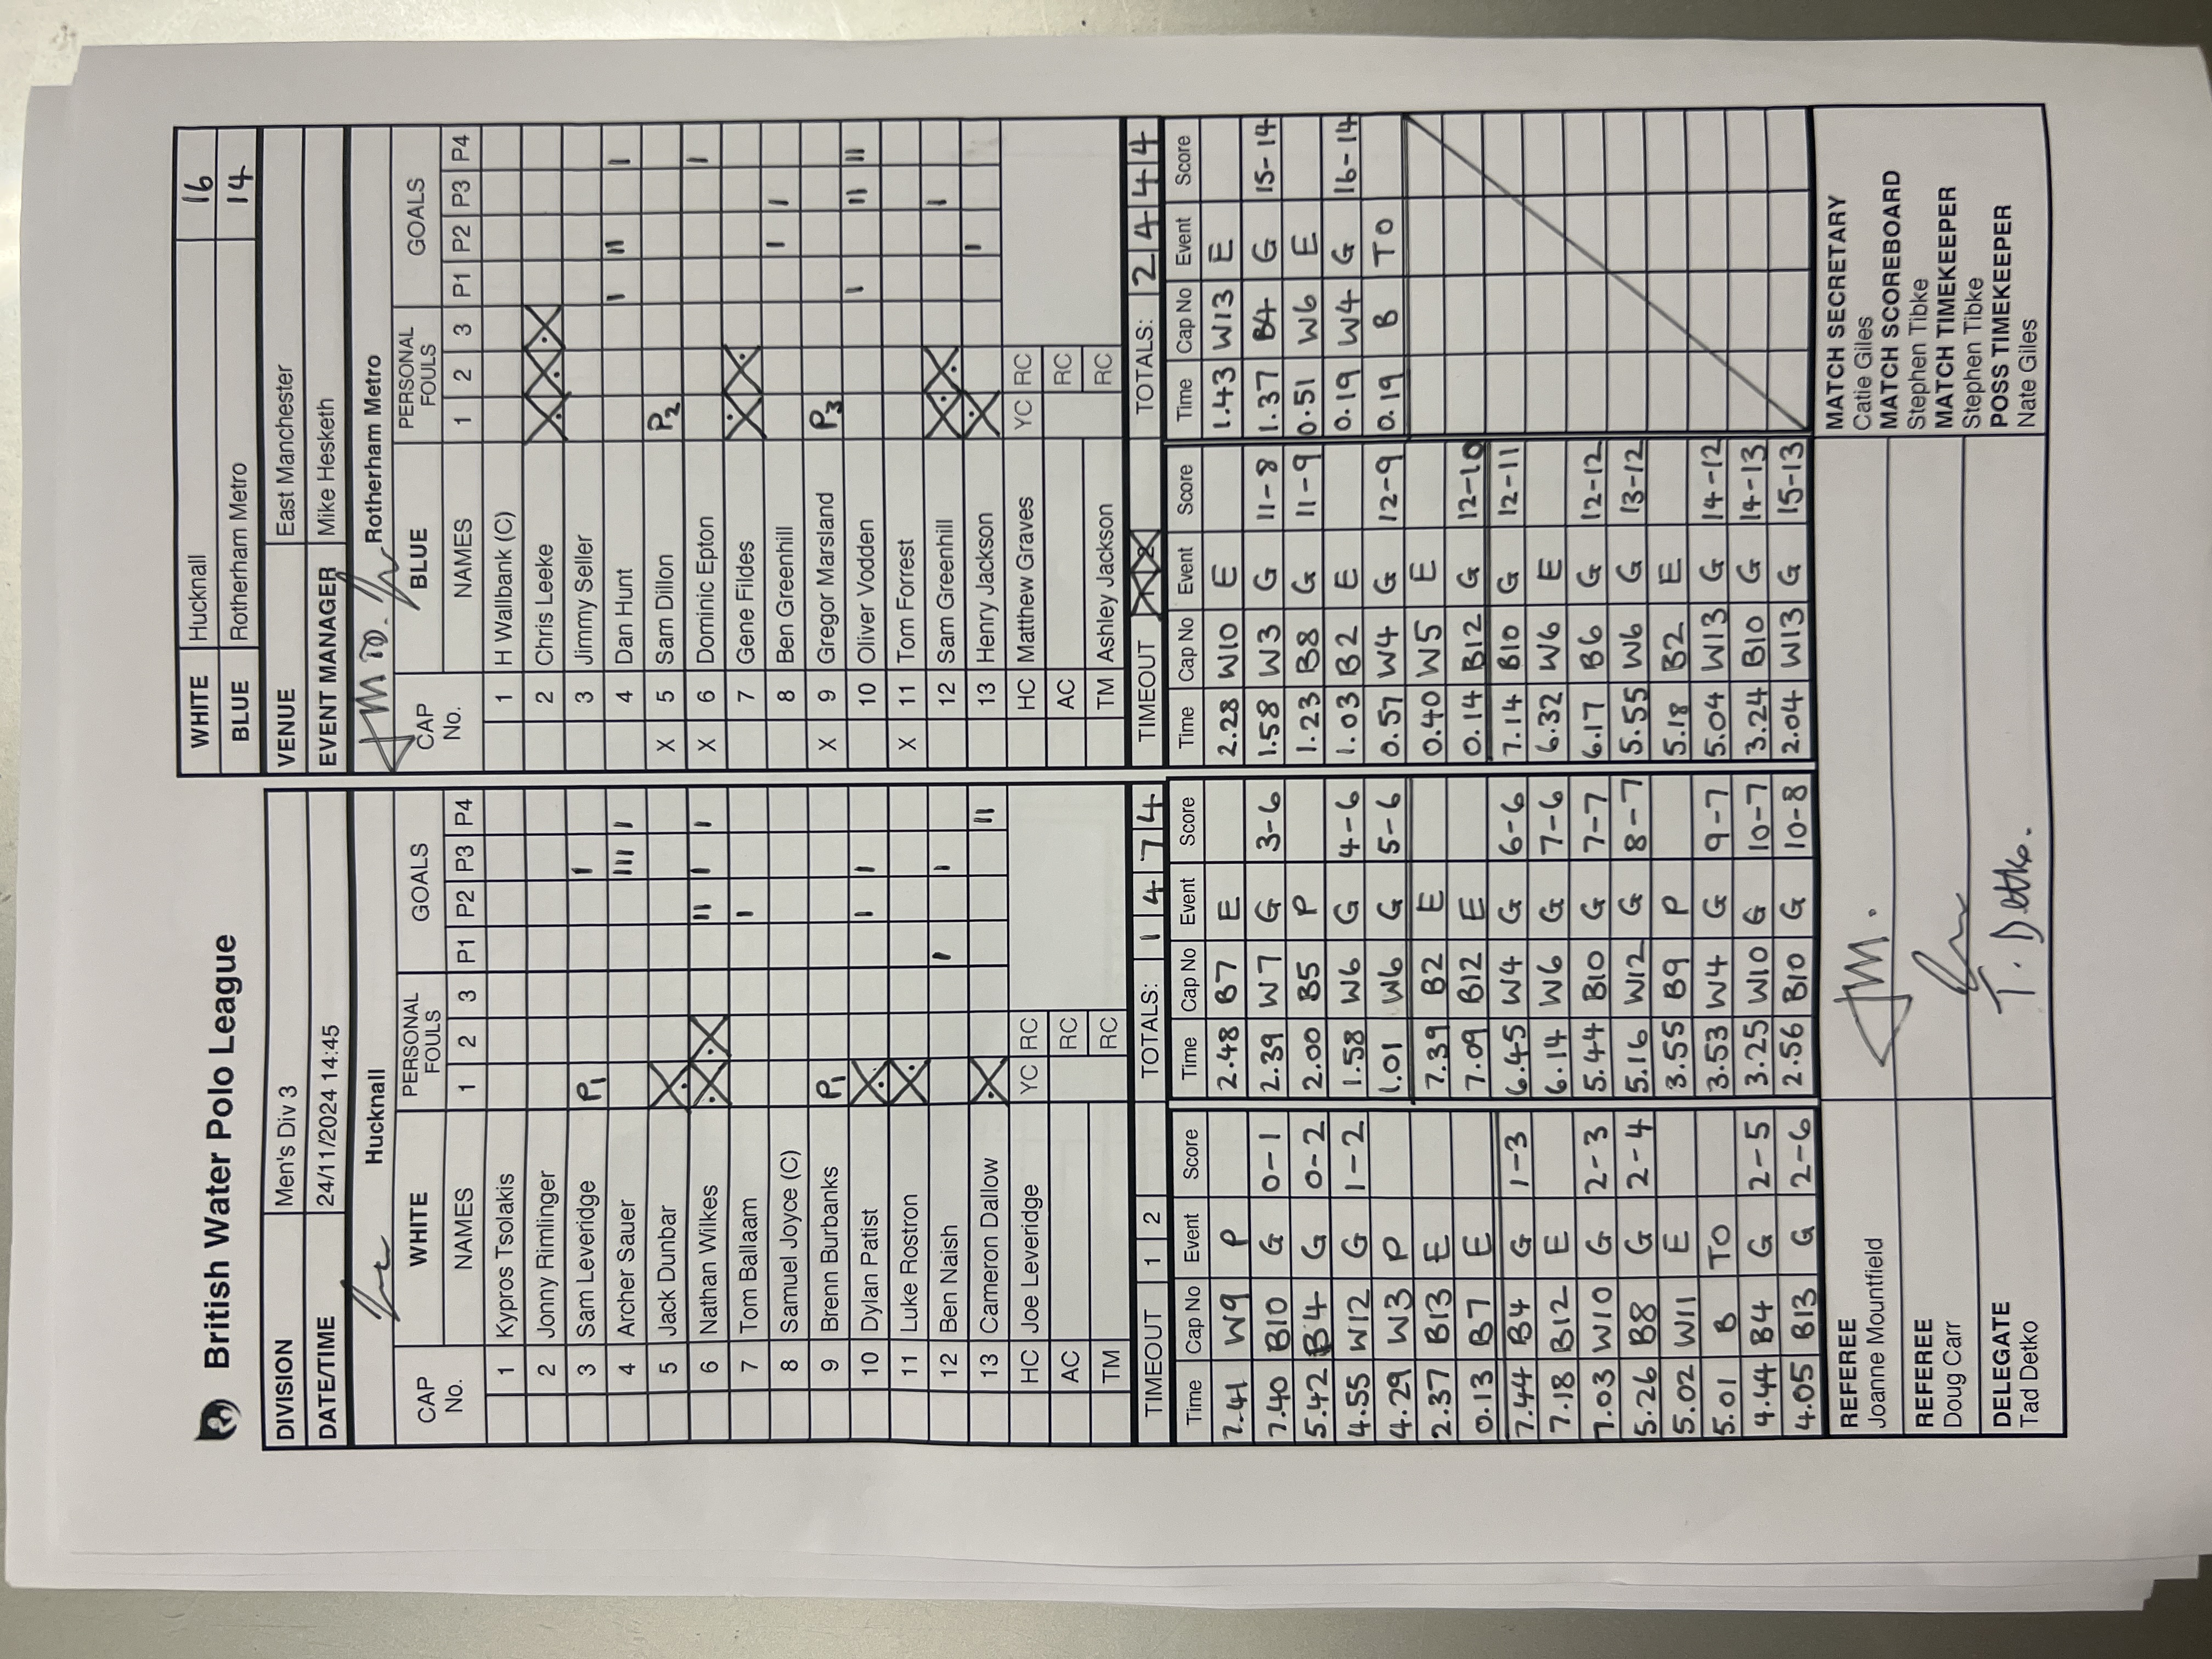 British Water Polo League
WHITE Hucknall 16
BLUE Rotherham Metro 14
DIVISION Men's Div 3
VENUE East Manchester
DATE/TIME 24/11/2024 14:45
EVENT MANAGER Mike Hesketh
Hucknall
CAP No. WHITE NAMES PERSONAL FOULS 1 2 3 GOALS P1 P2 P3 P4
1 Kypros Tsolakis
2 Jonny Rimlinger
3 Sam Leveridge P1 I
4 Archer Sauer III I
5 Jack Dunbar X
6 Nathan Wilkes X X II I I
7 Tom Ballaam I
8 Samuel Joyce (C)
9 Brenn Burbanks P1
10 Dylan Patist X I I
11 Luke Rostron X
12 Ben Naish I I
13 Cameron Dallow X II
HC Joe Leveridge YC RC
AC RC
TM RC
TIMEOUT 1 2 TOTALS: 1 4 7 4
Rotherham Metro
CAP No. BLUE NAMES PERSONAL FOULS 1 2 3 GOALS P1 P2 P3 P4
1 H Wallbank (C)
2 Chris Leeke X X X
3 Jimmy Seller
4 Dan Hunt I II I
X 5 Sam Dillon P2
X 6 Dominic Epton I
7 Gene Fildes X X
8 Ben Greenhill I I
X 9 Gregor Marsland P3
10 Oliver Vodden I II II
X 11 Tom Forrest
12 Sam Greenhill X X I
13 Henry Jackson X I
HC Matthew Graves YC RC
AC RC
TM Ashley Jackson RC
TIMEOUT TOTALS: 2 4 4 4
Time Cap No Event Score
7.41 W9 P
7.40 B10 G 0-1
5.42 B4 G 0-2
4.55 W12 G 1-2
4.29 W3 P
2.37 B13 E
0.13 B7 E
7.44 B4 G 1-3
7.18 B12 E
7.03 W10 G 2-3
5.26 B8 G 2-4
5.02 W11 E
5.01 B TO
4.44 B4 G 2-5
4.05 B13 G 2-6
Time Cap No Event Score
2.48 B7 E
2.39 W7 G 3-6
2.00 B5 P
1.58 W6 G 4-6
1.01 W6 G 5-6
7.39 B2 E
7.09 B12 E
6.45 W4 G 6-6
6.14 W6 G 7-6
5.44 B10 G 7-7
5.16 W12 G 8-7
3.55 B9 P
3.53 W4 G 9-7
3.25 W10 G 10-7
2.56 B10 G 10-8
Time Cap No Event Score
2.28 W10 E
1.58 W3 G 11-8
1.23 B8 G 11-9
1.03 B2 E
0.57 W4 G 12-9
0.40 W5 E
0.14 B12 G 12-10
7.14 B10 G 12-11
6.32 W6 E
6.17 B6 G 12-12
5.55 W6 G 13-12
5.18 B2 E
5.04 W13 G 14-12
3.24 B10 G 14-13
2.04 W13 G 15-13
Time Cap No Event Score
1.43 W13 E
1.37 B4 G 15-14
0.51 W6 E
0.19 W4 G 16-14
0.19 B TO
REFEREE
Joanne Mountfield
REFEREE
Doug Carr
DELEGATE
Tad Detko
T. Detko.
MATCH SECRETARY
Catie Giles
MATCH SCOREBOARD
Stephen Tibke
MATCH TIMEKEEPER
Stephen Tibke
POSS TIMEKEEPER
Nate Giles